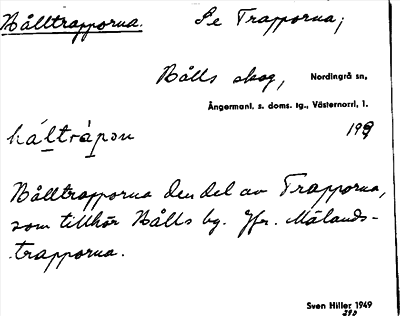 Bålltrapporna. Se Trapporna;
Bålls skog, Nordingrå sn,
Ångermanl. s. doms. tg., Västernorrl. l.
håltràpɘn 199
Bålltrapporna den del av Trapporna,
som tillhör Bålls by. Jfr. Mälands-
trapporna.
Sven Hiller 1949